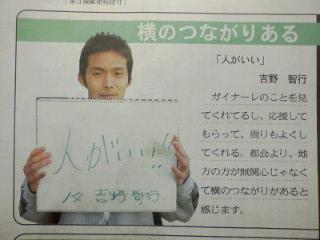 (第3種郵便物認可)
横のつながりある
「人がいい」
吉野 智行
ガイナーレのことを見
てくれてるし、応援して
もらって、周りもよくし
てくれる。都会より、地
方の方が無関心じゃなく
て横のつながりがあると
感じます。
人がいい!!
吉野 智行